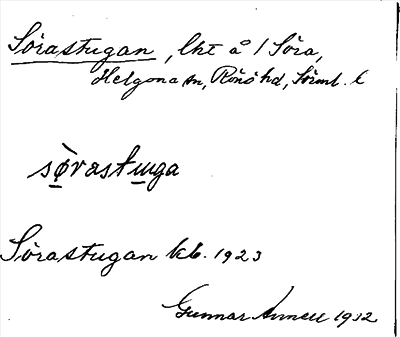 Sörastugan, lht å 1 Söra,
Helgona sn, Rönö hd, Sörml. l
sørastuga
Sörastugan kb. 1923
Gunnar Annell 1932